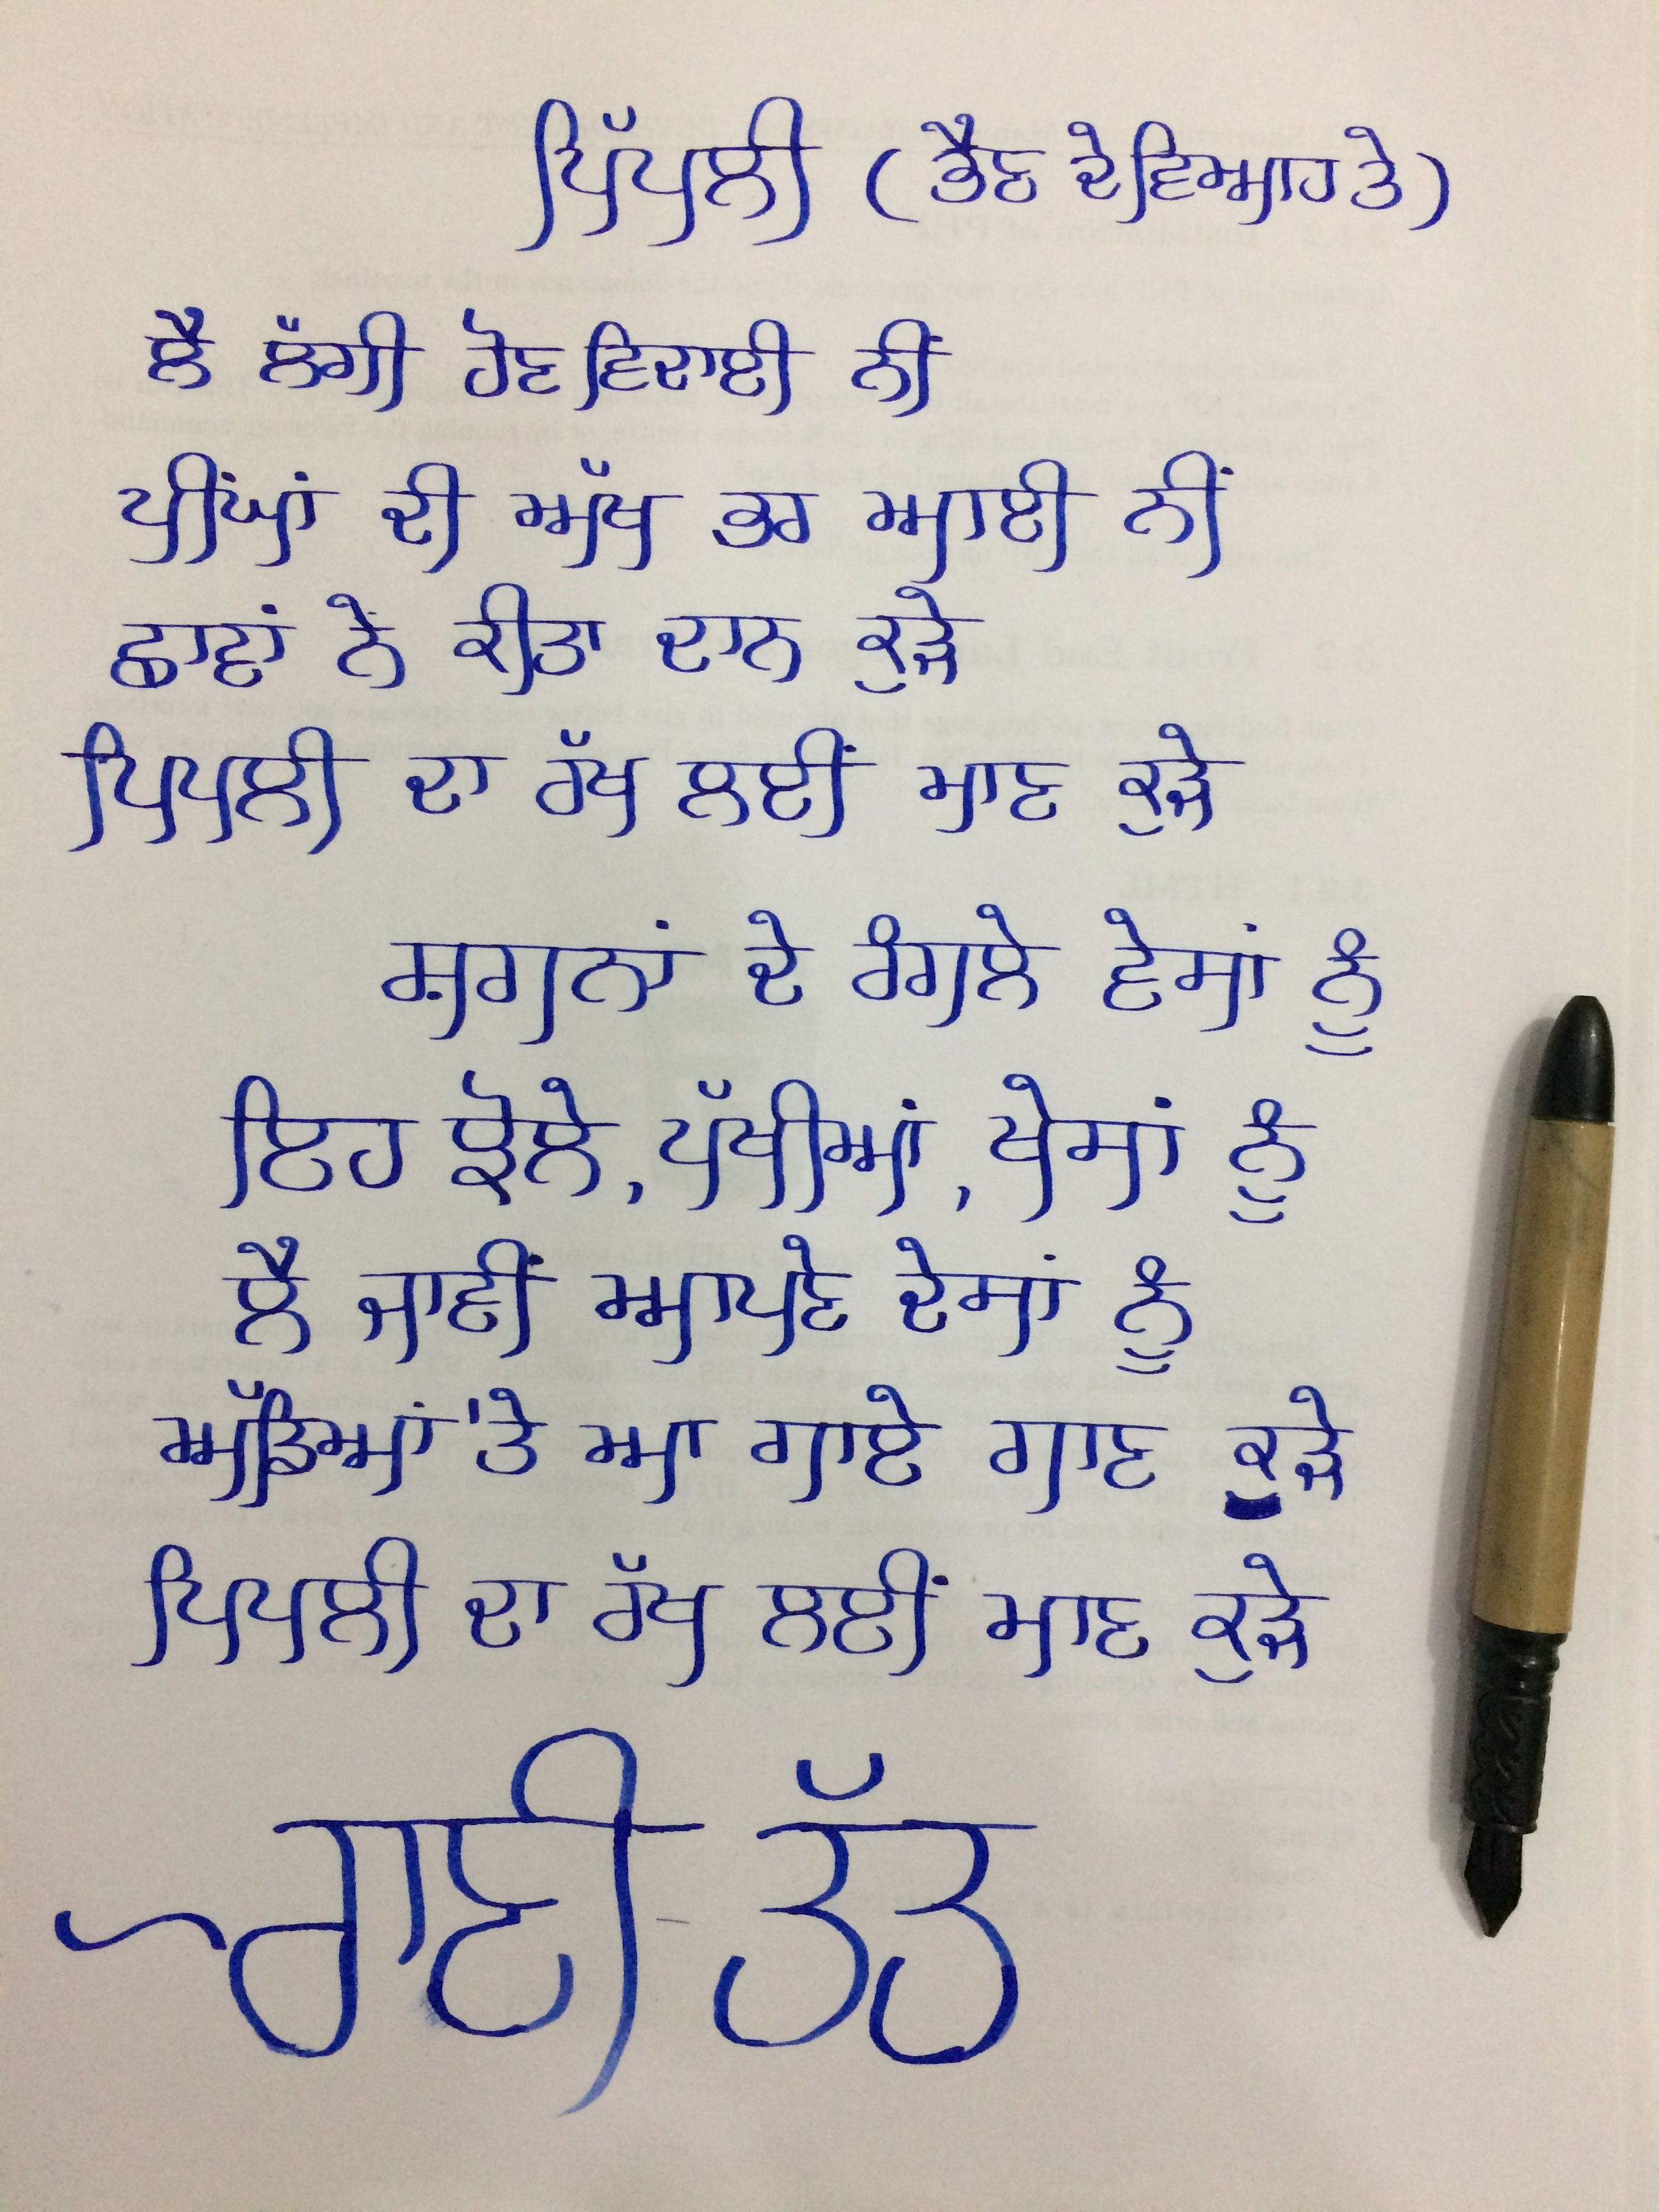 ਪਿੱਪਲੀ (ਭੈਣ ਦੇ ਵਿਆਹ ਤੇ)
ਲੈ ਲੱਗੀ ਹੋਣ ਵਿਦਾਈ ਨੀਂ
ਪੀਂਘਾਂ ਦੀ ਅੱਖ ਭਰ ਆਈ ਨੀਂ
ਛਾਵਾਂ ਨੇ ਕੀਤਾ ਦਾਨ ਕੁੜੇ
ਪਿਪਲੀ ਦਾ ਰੱਖ ਲਈਂ ਮਾਣ ਕੁੜੇ
ਸ਼ਗਨਾਂ ਦੇ ਰੰਗਲੇ ਵੇਸਾਂ ਨੂੰ
ਇਹ ਝੋਲੇ, ਪੱਖੀਆਂ, ਖੇਸਾਂ ਨੂੰ
ਲੈ ਜਾਵੀਂ ਆਪਣੇ ਦੇਸਾਂ ਨੂੰ
ਅੱਡਿਆਂ 'ਤੇ ਆ ਗਾਏ ਗਾਣ ਕੁੜੇ
ਪਿਪਲੀ ਦਾ ਰੱਖ ਲਈਂ ਮਾਣ ਕੁੜੇ
ਰਾਵੀ ਤੱਤ